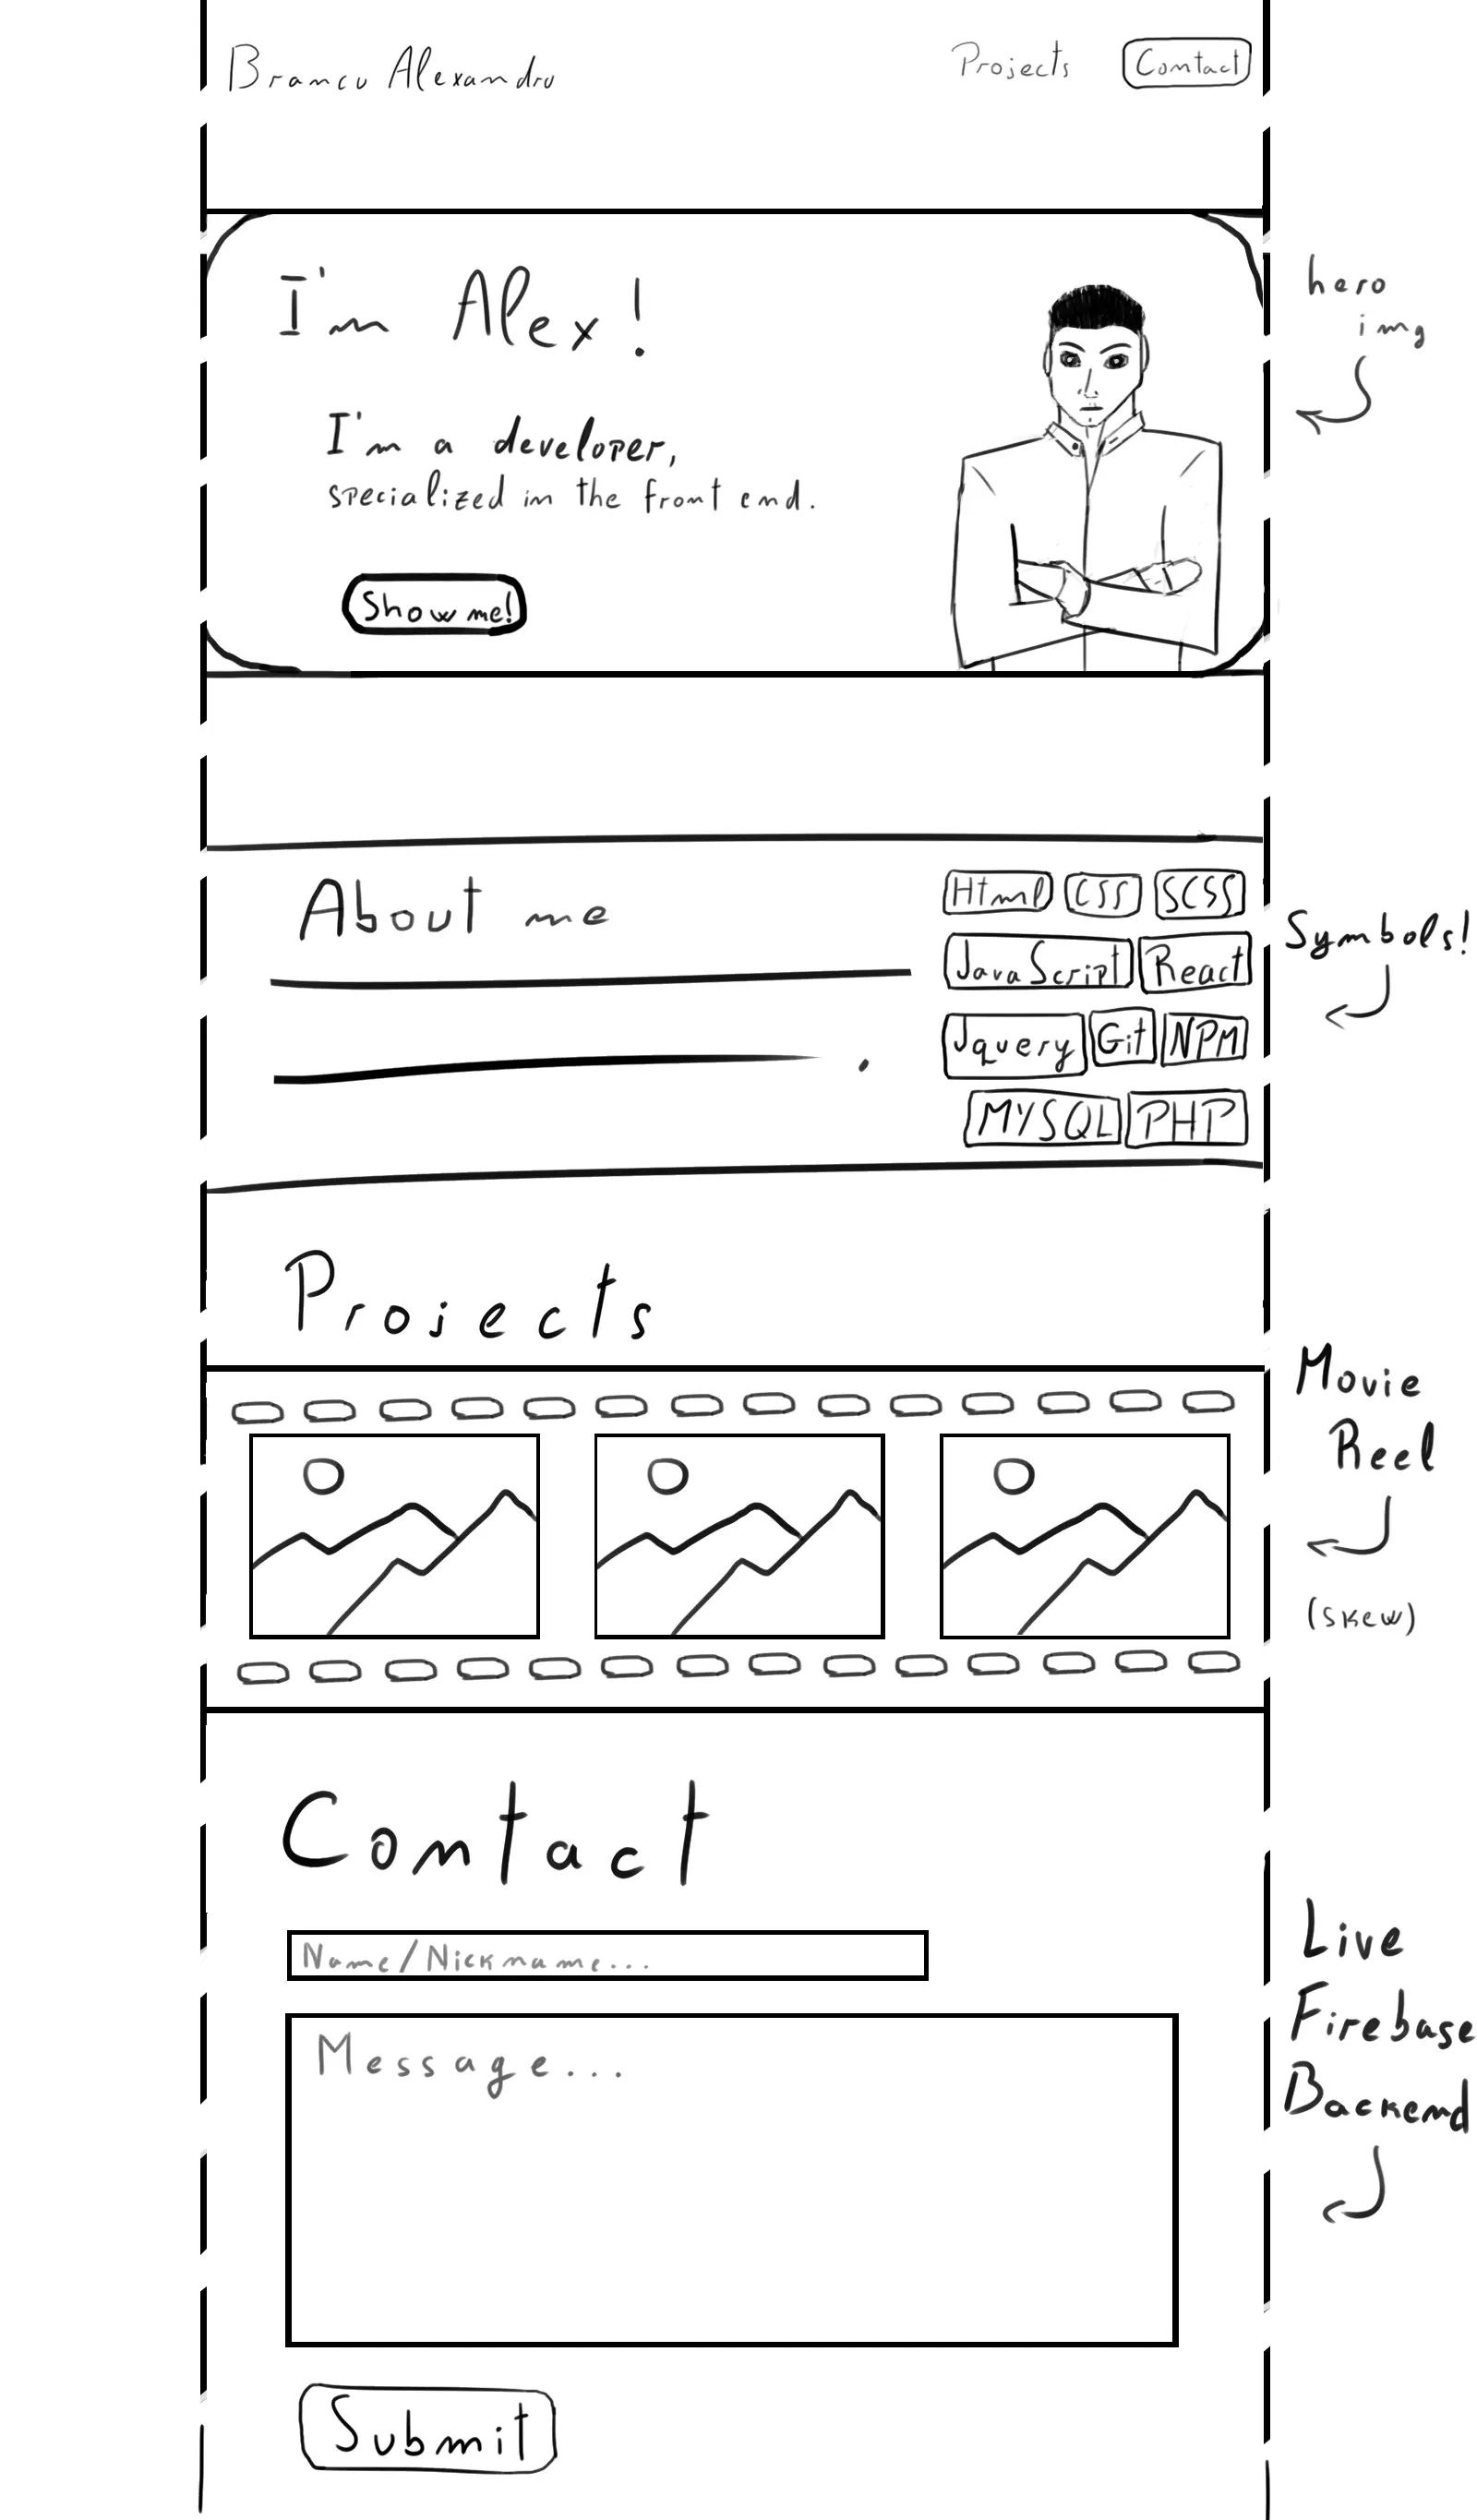 Brancu Alexandru
Projects
Contact
I'm Alex!
hero
img
I'm a developer,
specialized in the front end.
Show me!
About me
Html CSS SCSS
JavaScript React
Jquery Git NPM
MYSQL PHP
Symbols!
Projects
Movie
Reel
(skew)
Contact
Name/Nickname...
Message...
Live
Firebase
Backend
Submit